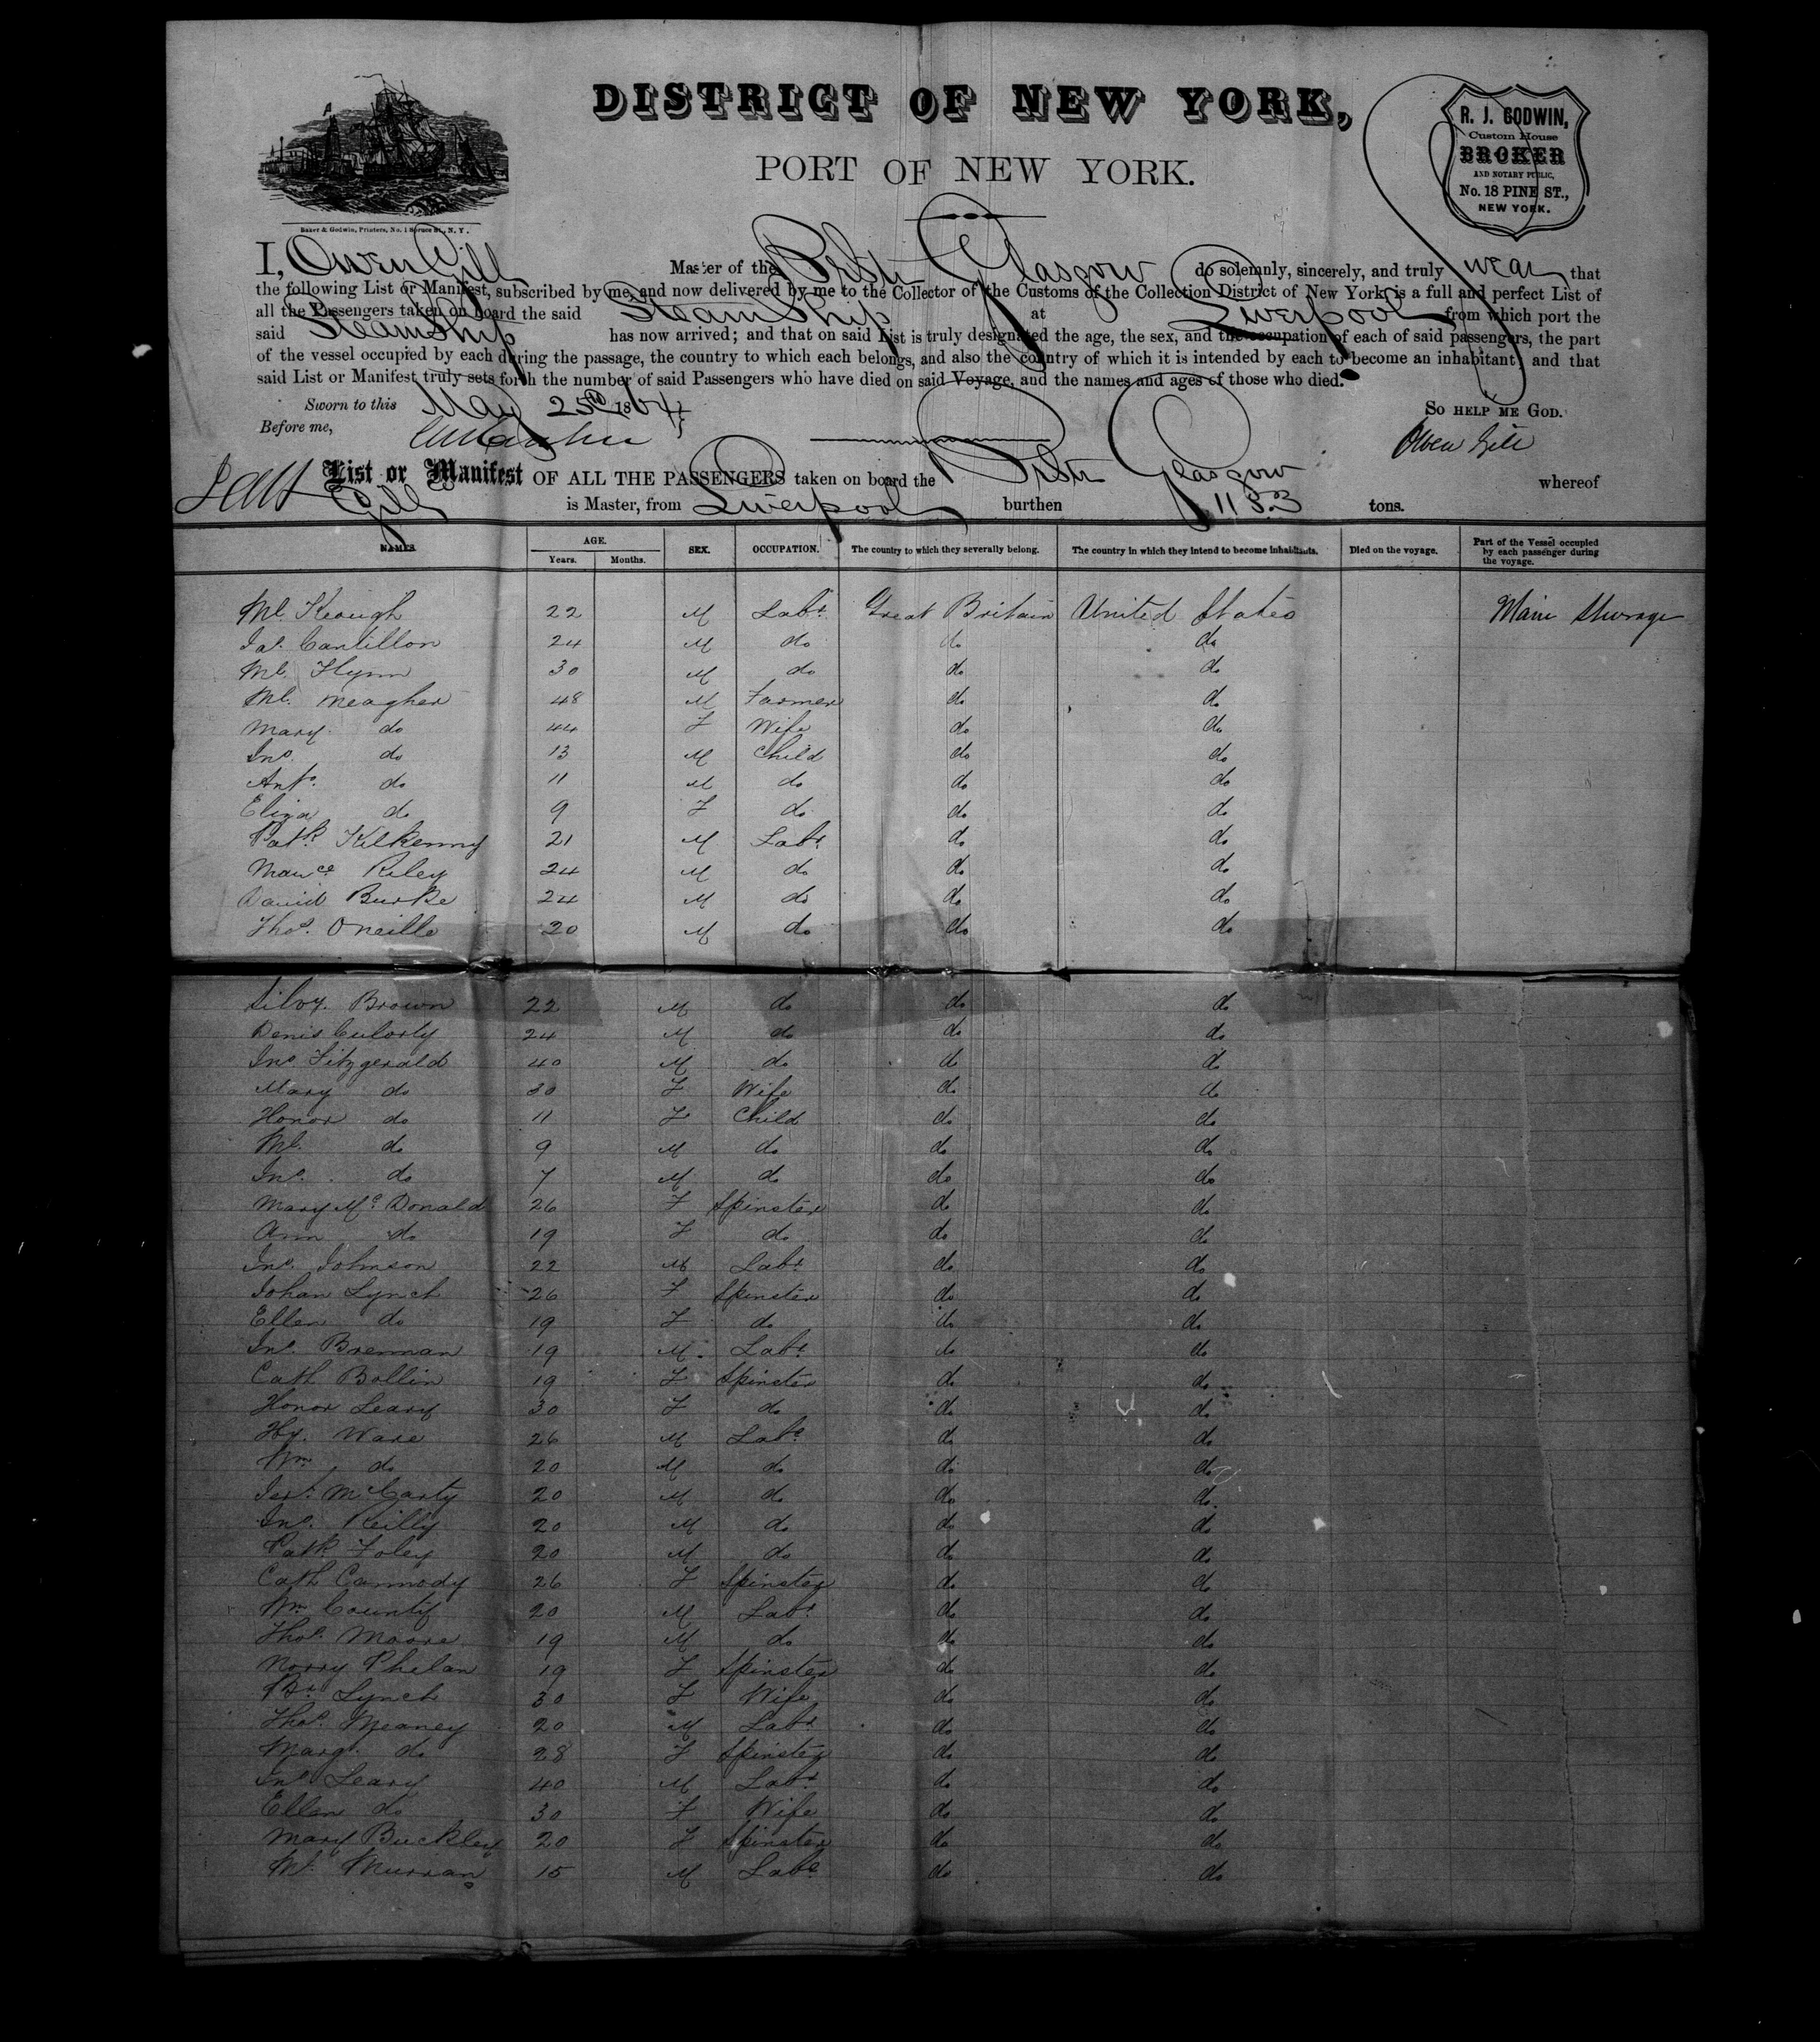 DISTRICT OF NEW YORK,
PORT OF NEW YORK.
R. J. GODWIN,
Custom House
BROKER
AND NOTARY PUBLIC,
No. 18 PINE ST.,
NEW YORK.
Baker & Godwin, Printers, No. 1 Spruce St., N. Y.
I, Owen Gill Master of the Br Str Glasgow do solemnly, sincerely, and truly swear that
the following List or Manifest, subscribed by me, and now delivered by me to the Collector of the Customs of the Collection District of New York, is a full and perfect List of
all the Passengers taken on board the said Steam Ship at Liverpool from which port the
said Steam Ship has now arrived; and that on said List is truly designated the age, the sex, and the occupation of each of said passengers, the part
of the vessel occupied by each during the passage, the country to which each belongs, and also the country of which it is intended by each to become an inhabitant; and that
said List or Manifest truly sets forth the number of said Passengers who have died on said Voyage, and the names and ages of those who died.
Sworn to this May 25th 1864 So HELP ME GOD.
Before me, Owen Gill
List or Manifest OF ALL THE PASSENGERS taken on board the Br Str Glasgow whereof
Gill is Master, from Liverpool burthen 1153 tons.
NAMES. AGE. Years. Months. SEX. OCCUPATION. The country to which they severally belong. The country in which they intend to become inhabitants. Died on the voyage. Part of the Vessel occupied by each passenger during the voyage.
Ml. Keough 22 M Labr. Great Britain United States Main Steerage
Jas. Cantillon 24 M do do do
Ml. Flynn 30 M do do do
Ml. Meagher 48 M Farmer do do
Mary do 44 F Wife do do
Jno. do 13 M Child do do
Anto. do 11 M do do do
Eliza do 9 F do do do
Patk. Kilkenny 21 M Labr. do do
Maurce Riley 24 M do do do
David Burke 24 M do do do
Thos. Oneille 20 M do do do
Silvy. Brown 22 M do do do
Denis Culorty 24 M do do do
Jno. Fitzgerald 40 M do do do
Mary do 30 F Wife do do
Honor do 11 F Child do do
Ml. do 9 M do do do
Jno. do 7 M do do do
Mary Mc Donald 26 F Spinster do do
Ann do 19 F do do do
Jno. Johnson 22 M Labr. do do
Johan Lynch 26 F Spinster do do
Ellen do 19 F do do do
Jno. Brennan 19 M Labr. do do
Cath Bollin 19 F Spinster do do
Honor Leary 30 F do do do
Hy. Ware 26 M Labr. do do
Wm. do 20 M do do do
Jerh. McCarty 20 M do do do
Jno. Reilly 20 M do do do
Patk Foley 20 M do do do
Cath Carmody 26 F Spinster do do
Wm. 20 M Labr. do do
Thos. Moore 19 M do do do
Norry Phelan 19 F Spinster do do
Bt. Lynch 30 F Wife do do
Thos. Meaney 20 M Labr. do do
Margt. do 28 F Spinster do do
Jno. Leary 40 M Labr. do do
Ellen do 30 F Wife do do
Mary Buckley 20 F Spinster do do
Ml. Murran 15 M Labr. do do